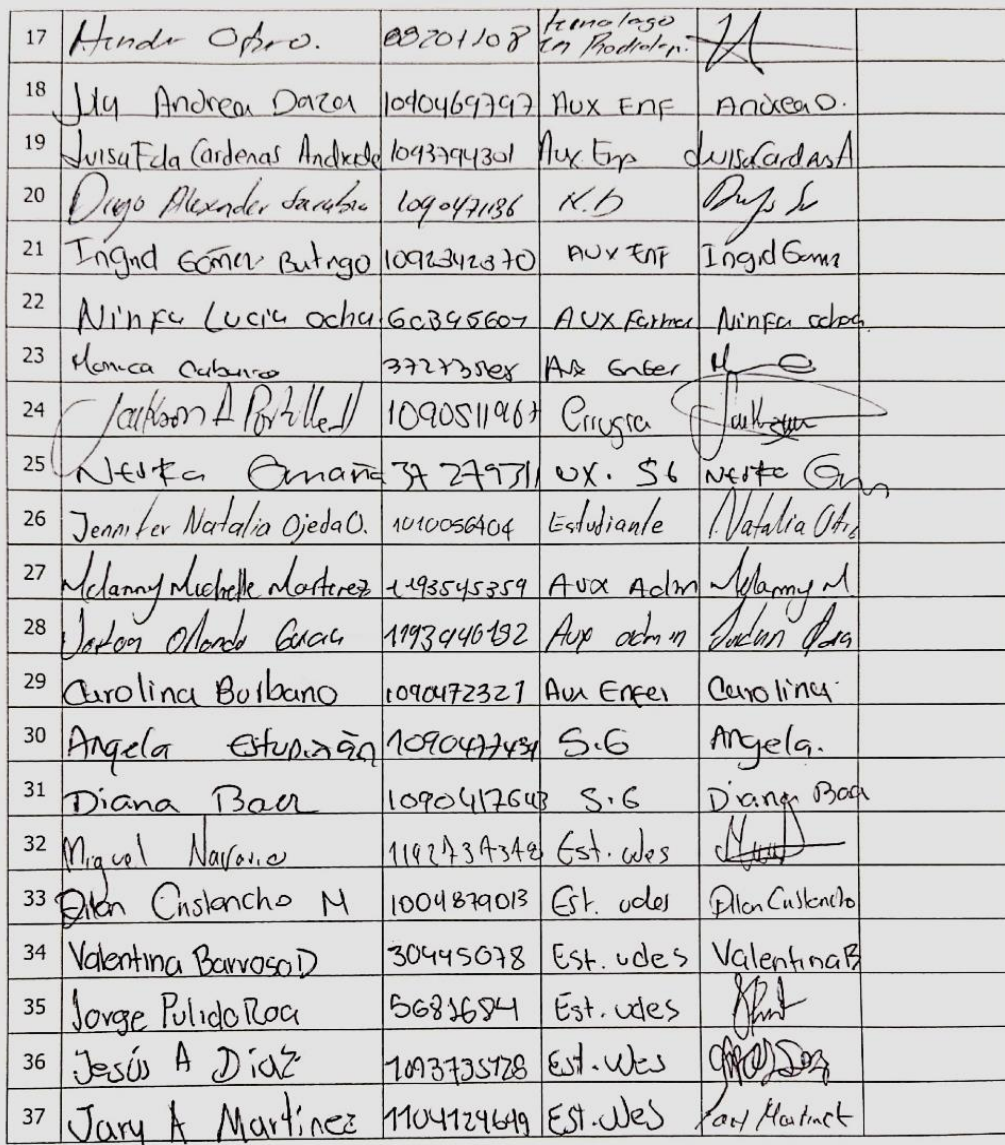 17 Hendr Opro. 88201108 Tecnologo en Radiolog.
18 July Andrea Daza 1090469797 Aux Enf Andrea D.
19 Luisa Fda Cardenas Andrade 1093794301 Aux Enf Luisa Cardenas A
20 Diego Alexander Sarabia 1090471136 M.D
21 Ingrid Gómez Buitrago 1092342370 Aux Enf Ingrid Gomez
22 Ninfa Lucia ochoa 60345607 Aux Farma Ninfa ochoa
23 Monica Aux Enfer
24 Jackson A Portilla 1090511967 Cirugia Jackson
25 Omaña 37279311 UX. SG
26 Jennifer Natalia Ojeda O. 1010056404 Estudiante Natalia
27 Melanny Michelle Martinez 1193545359 Aux Admn Melanny M.
28 Orlando Garcia Aux admin
29 Carolina Burbano 1090472327 Aux Enfer Carolina
30 Angela Estupiñán 1090477454 S.G Angela.
31 Diana Baez 1090417643 S.G Diana Baez
32 Miguel Navarro Est. udes
33 Dilan Cristancho M 1004879013 Est. udes Dilan Cristancho
34 Valentina Barroso D 30445078 Est. udes Valentina B
35 Jorge Pulido Roa 5681684 Est. udes
36 Jesús A Díaz 1093735728 Est. udes
37 Jary A Martínez 1104124649 Est. udes Jary Martinez